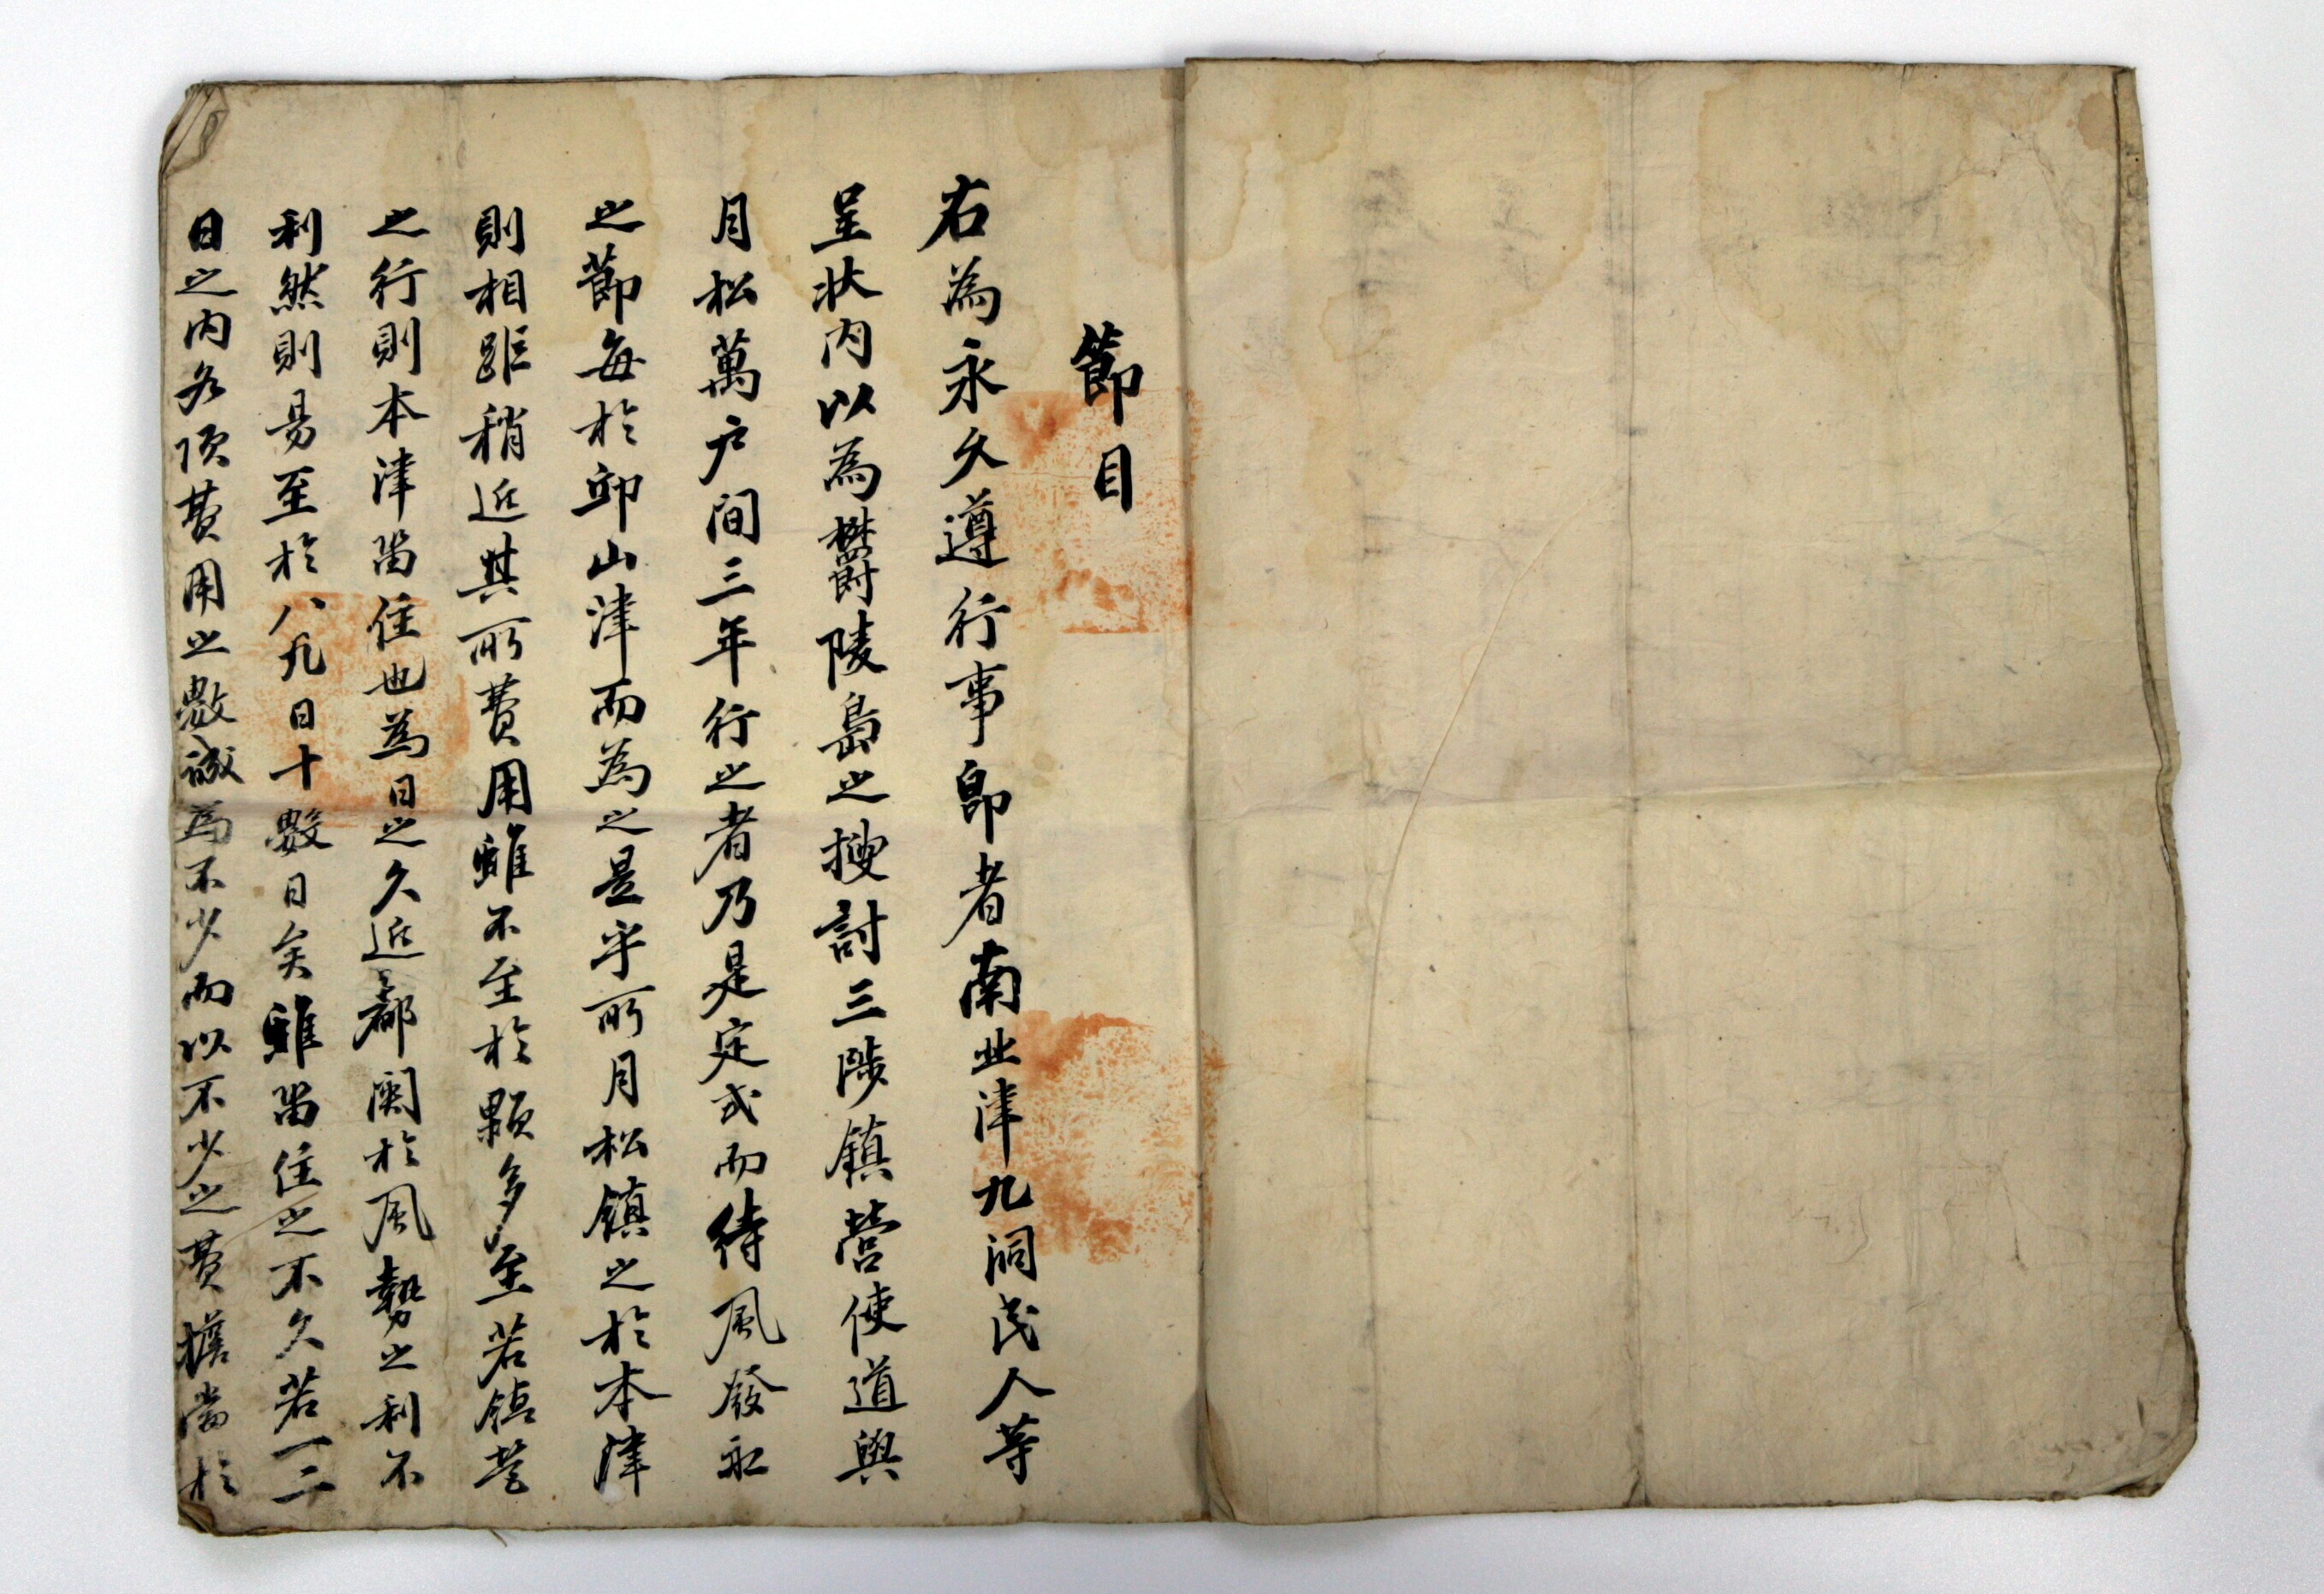 節目
右為永久遵行事卽者南北津九洞民人等
呈狀內以為欝陵島之搜討三陟鎮營使道與
月松萬户间三年行之者乃是定式而待風發舡
之節每於邱山津而為之是乎所月松鎮之於本津
則相距稍近其所費用雖不至於顆多至若鎮營
之行則本津畄住也為日之久近都関於風勢之利不
利然則易至於八九日十數日矣雖畄住之不久若一二
日之內各項費用之數誠為不少而以不少之費擔當於